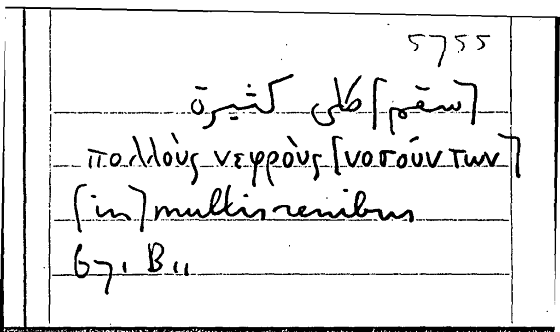 5755
[سقم] كلى كثيرة
πολλοὺς νεφροὺς [νοσούντων]
[in] multis renibus
67, B 11